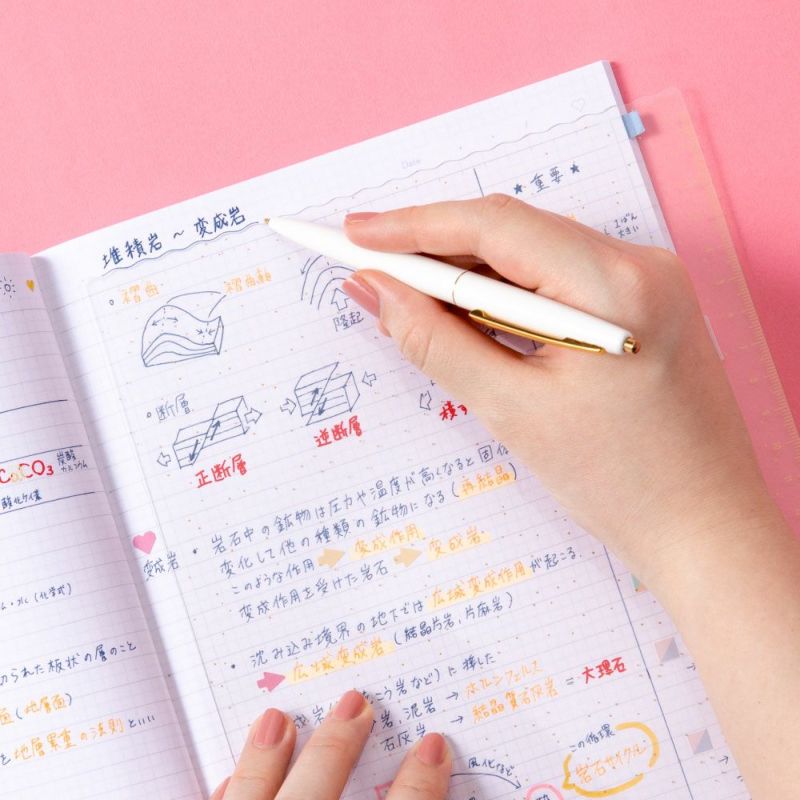 CaCO3 炭酸カルシウム
(化学式)
切られた板状の層のこと
面(地層面)
を地層累重の法則といい
Date
堆積岩 ~ 変成岩
★ 重要 ★
1ばん
大きい
。褶曲 褶曲軸
隆起
。断層
正断層
逆断層
変成岩
・岩石中の鉱物は圧力や温度が高くなると固体
変化して他の種類の鉱物になる(再結晶)
このような作用 → 変成作用
変成作用を受けた岩石 → 変成岩
・沈み込み境界の地下では広域変成作用が起こる.
→ 広域変成岩 (結晶片岩, 片麻岩)
岩, 泥岩 → ホルンフェルス
石灰岩 → 結晶質石灰岩 = 大理石
風化など
この循環
岩石サイクル